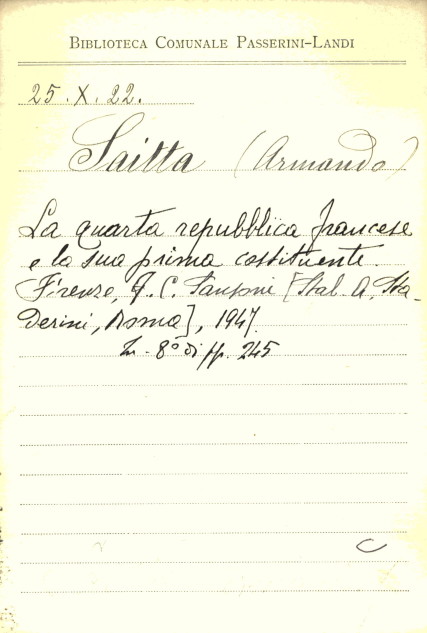 BIBLIOTECA COMUNALE PASSERINI-LANDI
25.X.22.
Saitta (Armando)
La quarta repubblica francese
e la sua prima costituente.
Firenze, G. C. Sansoni [Stab. A. Sta-
derini, Roma], 1947.
In-8° di pp. 245
C